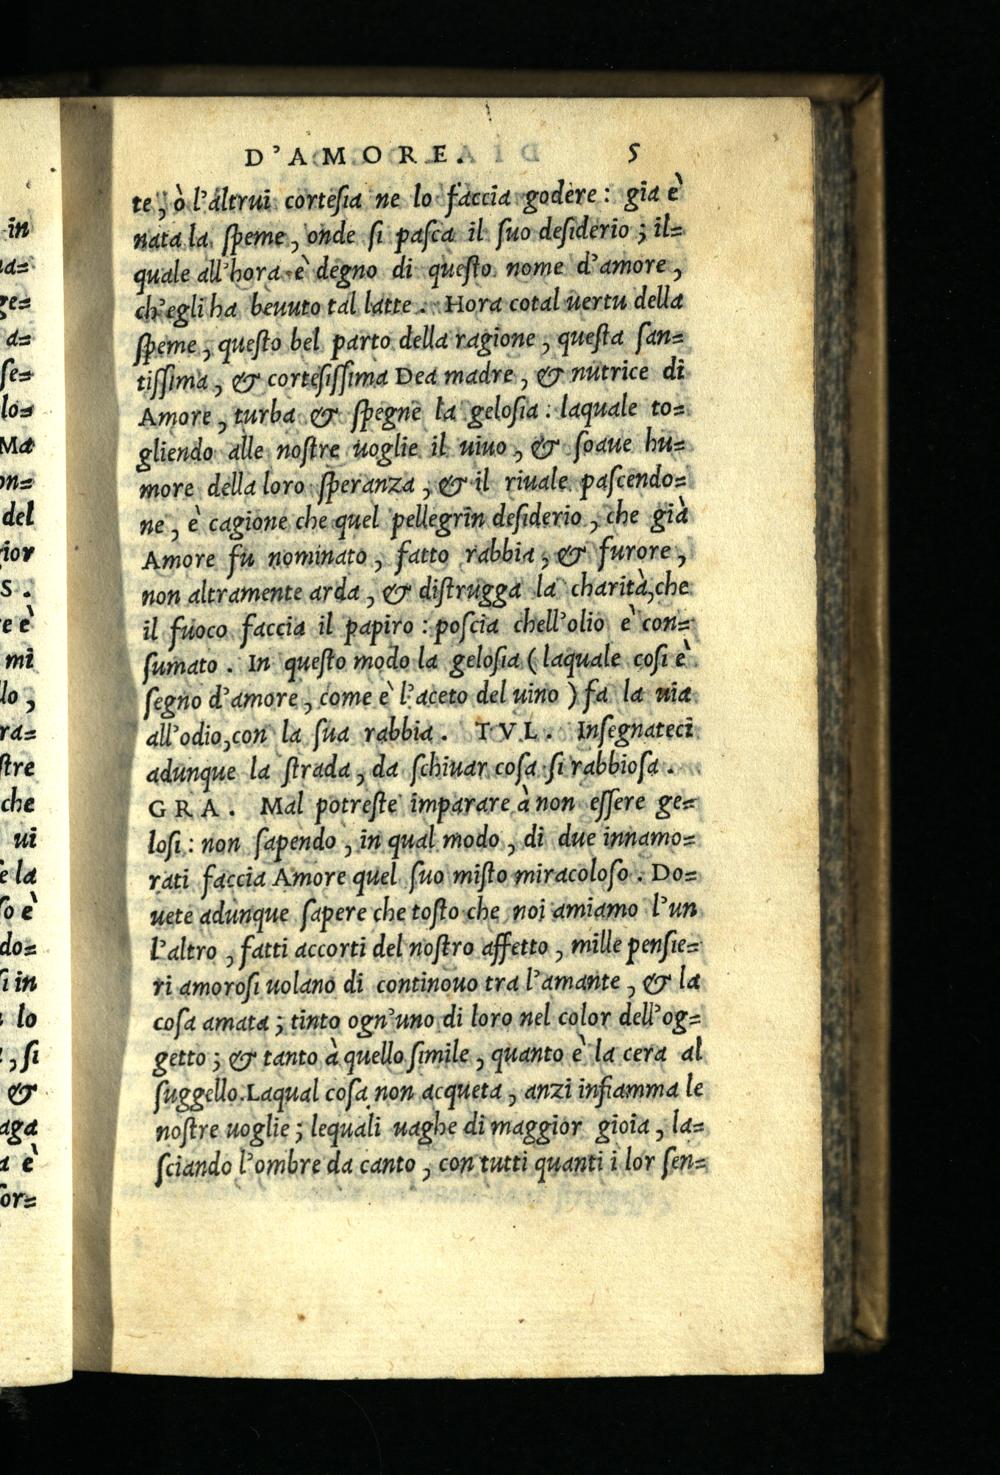 D'AMORE. 5
te, ò l'altrui cortesia ne lo faccia godere: gia è
nata la speme, onde si pasca il suo desiderio; il=
quale all'hora è degno di questo nome d'amore,
ch'egli ha bevuto tal latte. Hora cotal uertu della
speme, questo bel parto della ragione, questa san=
tissima, & cortesissima Dea madre, & nutrice di
Amore, turba & spegne la gelosia: laquale to=
gliendo alle nostre uoglie il uiuo, & soave hu=
more della loro speranza, & il rivale pascendo=
ne, è cagione che quel pellegrin desiderio, che già
Amore fu nominato, fatto rabbia, & furore,
non altramente arda, & distrugga la charità, che
il fuoco faccia il papiro: poscia chell'olio è con=
sumato. In questo modo la gelosia (laquale cosi è
segno d'amore, come è l'aceto del uino) fa la uia
all'odio, con la sua rabbia. TVL. Insegnateci
adunque la strada, da schivar cosa si rabbiosa.
GRA. Mal potreste imparare à non essere ge=
losi: non sapendo, in qual modo, di due innamo=
rati faccia Amore quel suo misto miracoloso. Do=
uete adunque sapere che tosto che noi amiamo l'un
l'altro, fatti accorti del nostro affetto, mille pensie=
ri amorosi uolano di continouo tra l'amante, & la
cosa amata; tinto ogn'uno di loro nel color dell'og=
getto; & tanto à quello simile, quanto è la cera al
suggello. Laqual cosa non acqueta, anzi infiamma le
nostre uoglie; lequali uaghe di maggior gioia, la=
sciando l'ombre da canto, con tutti quanti i lor sen=